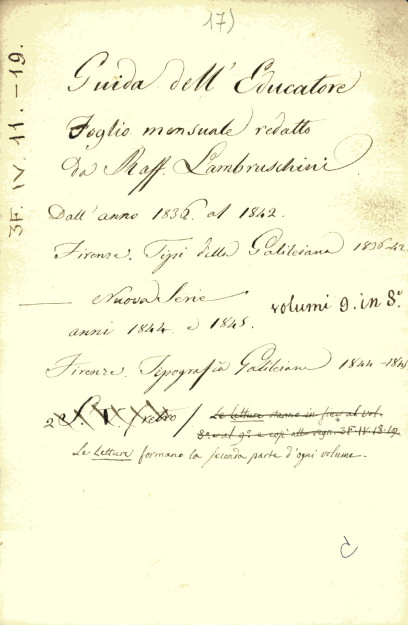 17)
3F. IV. 11. - 19.
Guida dell' Educatore
Foglio mensuale redatto
da Raff. Lambruschini
Dall' anno 1836. al 1842.
Firenze. Tipi della Galileiana 1836-42
Nuova Serie
volumi 9. in 8.°
anni 1844. e 1845.
Firenze. Tipografia Galileiana 1844-1845
Le Letture stanno in fine al vol.
Le Letture formano la seconda parte d'ogni volume.